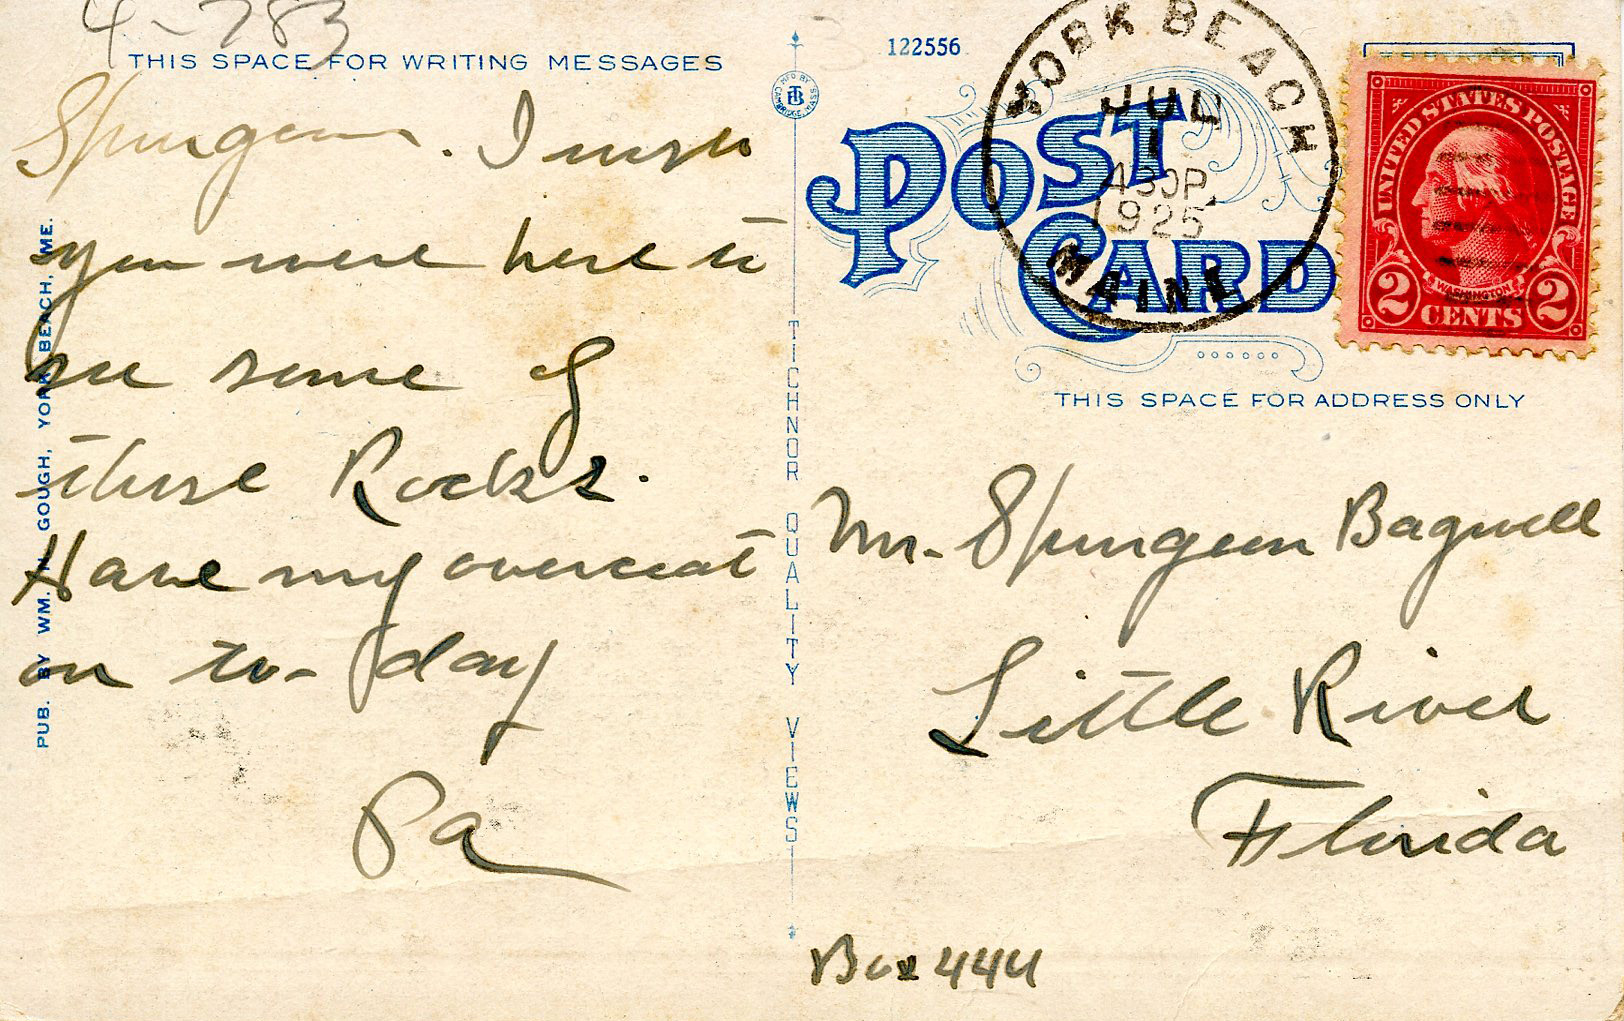 4-783
THIS SPACE FOR WRITING MESSAGES
Spurgeon. I wish
you were here to
see some of
these Rocks.
Have my overcoat
on to-day
Pa
PUB. BY WM. H. GOUGH, YORK BEACH, ME.
MFD BY
TB
CAMBRIDGE, MASS
TICHNOR QUALITY VIEWS
122556
POST CARD
YORK BEACH
JUL
1
430P
1925
MAINE
UNITED STATES POSTAGE
WASHINGTON
2 CENTS 2
THIS SPACE FOR ADDRESS ONLY
Mr. Spurgeon Bagwell
Little River
Florida
Box 444